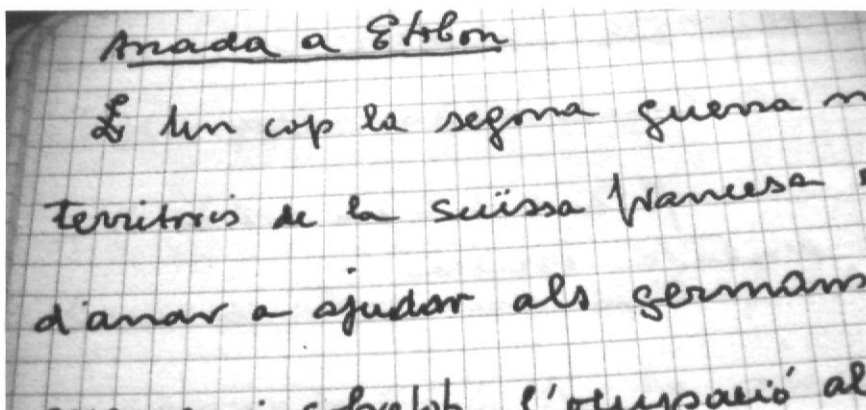 Anada a Etobon
Un cop la segona guerra
territoris de la suïssa francesa
d'anar a ajudar als germans
l'ocupació al